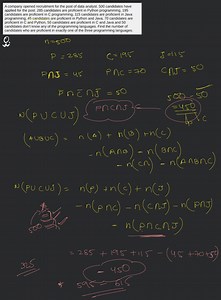 A company opened recruitment for the post of data analyst, 500 candidates have
applied for the post. 285 candidates are proficient in Python programming, 195
candidates are proficient in C programming, 115 candidates are proficient in Java
programming, 45 candidates are proficient in Python and Java, 70 candidates are
proficient in C and Python, 50 candidates are proficient in C and Java and 50
candidates don't know any of the programming languages. Find the number of
candidates who are proficient in exactly one of the three programming languages
n=500
P=285 C=195 J=115
P∩J=45 P∩C=70 C∩J=50
500-50
=450
P∩C∩J
N(PUCUJ)
(AUBUC) = n(A) + n(B) + n(C)
N(PUCUJ) = n(P) + n(C) + n(J)
- n(P∩C) - n(C∩J) - n(P∩J)
500
= 285 + 195 + 115 - (45+70+50)
325
- 450